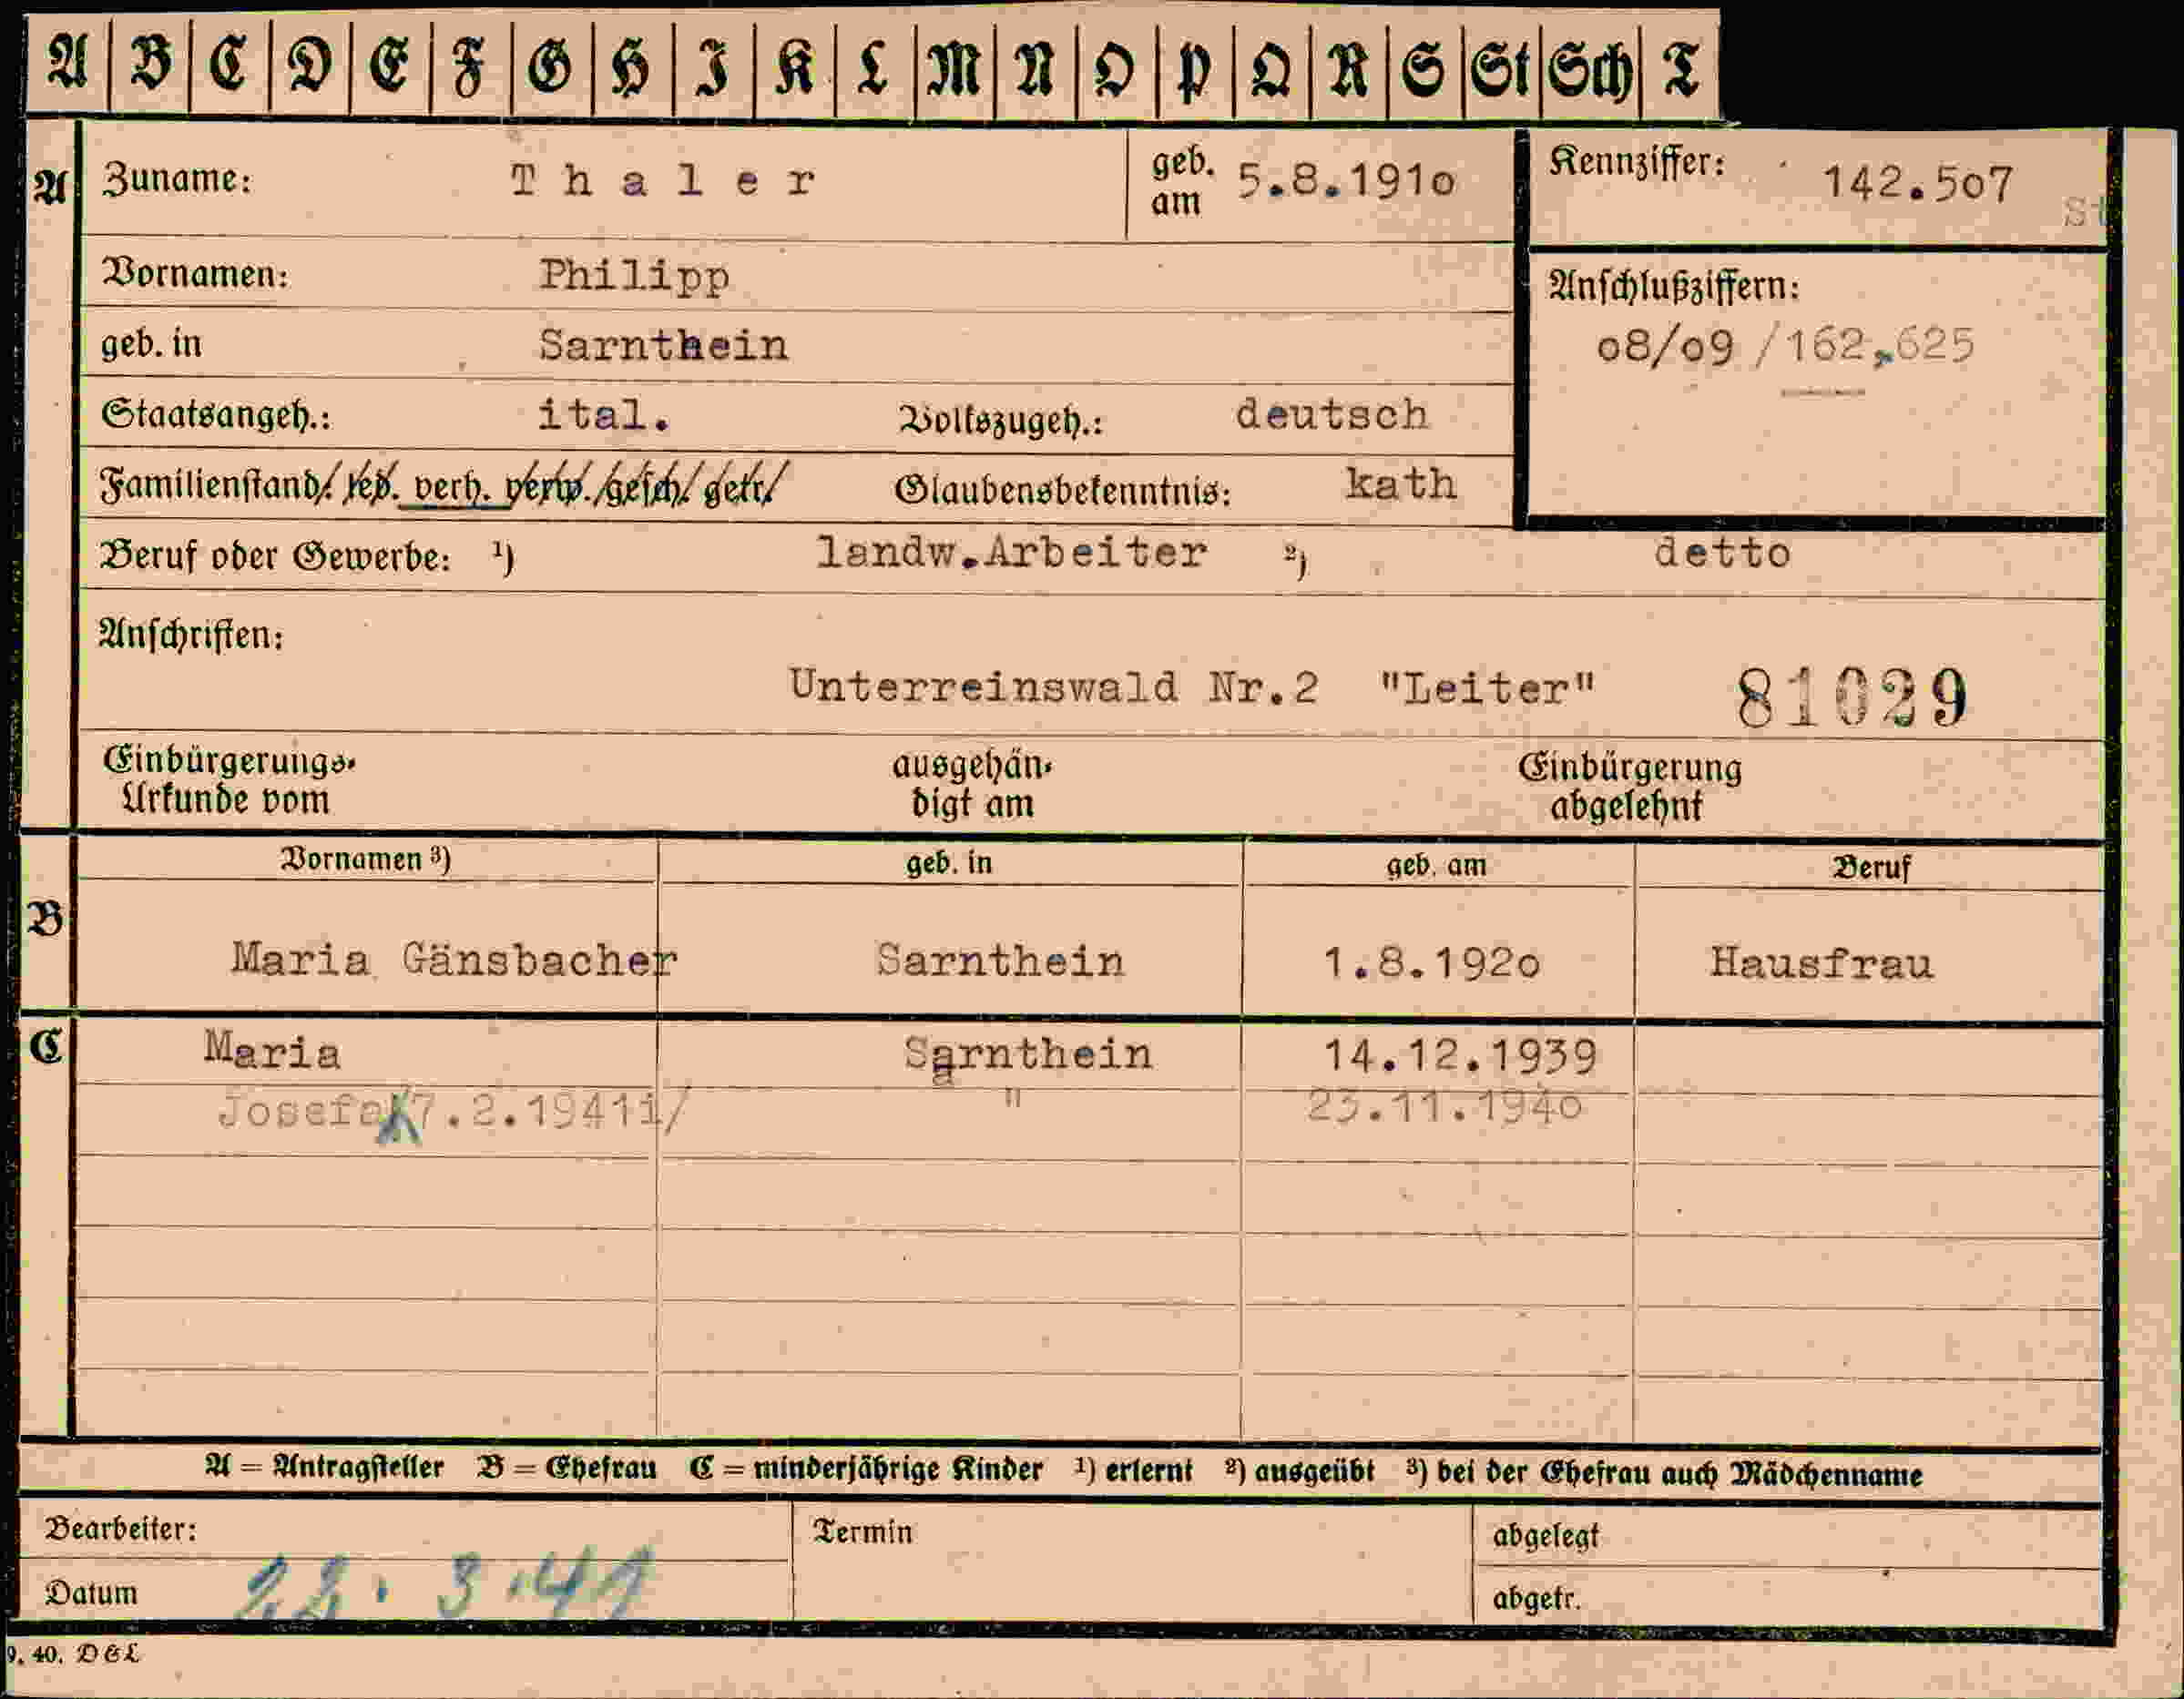 A B C D E F G H I K L M N O P Q R S St Sch T
A Zuname: Thaler geb. am 5.8.191o Kennziffer: 142.5o7 St
Vornamen: Philipp
Anschlußziffern:
geb. in Sarnthein o8/o9 /162,625
Staatsangeh.: ital. Volkszugeh.: deutsch
Familienstand: led. verh. verw. gesch. getr. Glaubensbekenntnis: kath
Beruf oder Gewerbe: ¹) landw.Arbeiter ²) detto
Anschriften:
Unterreinswald Nr.2 "Leiter" 81029
Einbürgerungs-Urkunde vom ausgehän-digt am Einbürgerung abgelehnt
Vornamen ³) geb. in geb. am Beruf
B
Maria Gänsbacher Sarnthein 1.8.192o Hausfrau
C Maria Sarnthein 14.12.1939
Josefa 7.2.1941i/ " 23.11.194o
A = Antragsteller B = Ehefrau C = minderjährige Kinder ¹) erlernt ²) ausgeübt ³) bei der Ehefrau auch Mädchenname
Bearbeiter: Termin abgelegt
Datum 22.3.41 abgetr.
9. 40. D&L